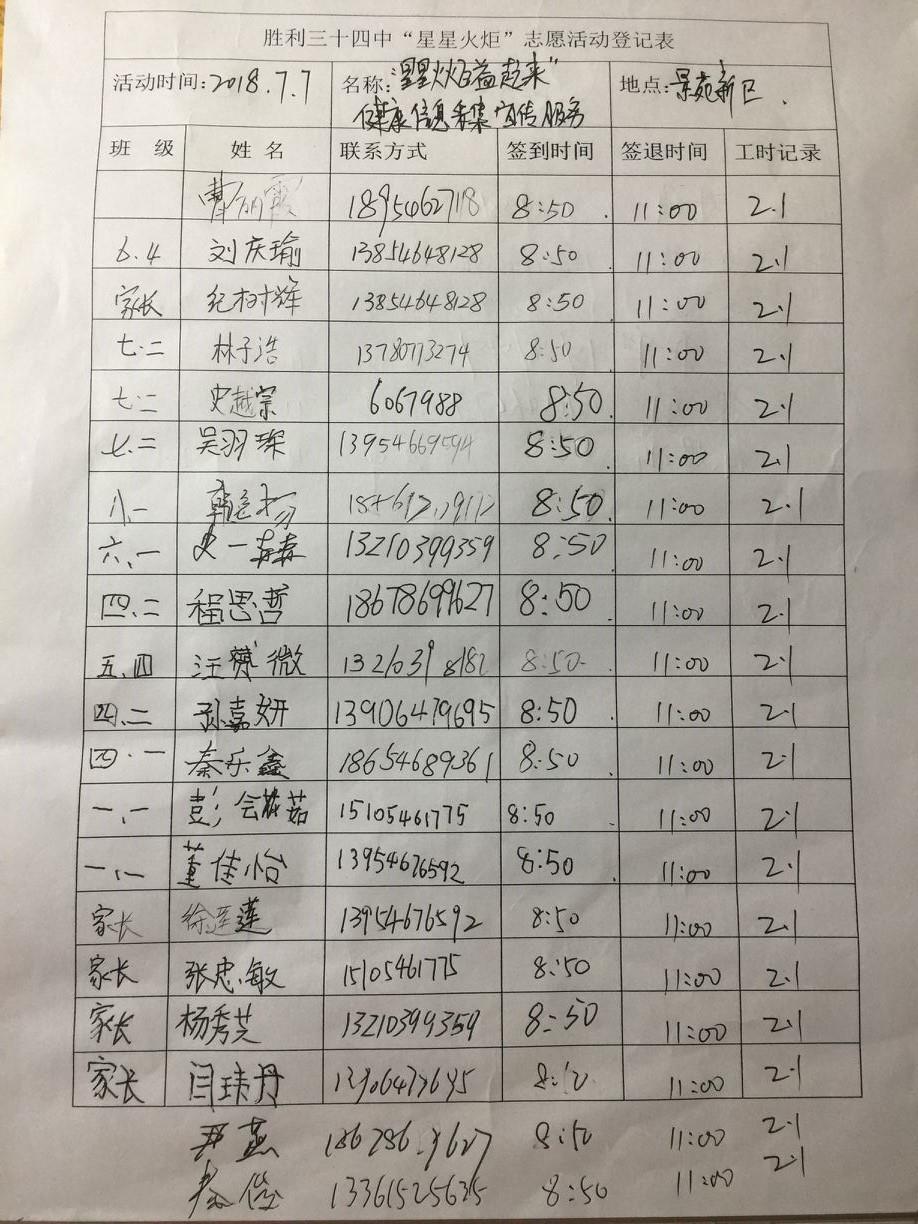 胜利三十四中“星星火炬”志愿活动登记表
活动时间:2018.7.7 名称:“星星火炬益起来” 地点:景苑新区.
健康信息采集宣传服务
班 级 姓 名 联系方式 签到时间 签退时间 工时记录
曹丽霞 18954627118 8:50 11:00 2.1
6.4 刘庆瑜 13854648128 8:50 11:00 2.1
家长 纪树辉 13854648128 8:50 11:00 2.1
七.二 林子浩 13780773274 8:50 11:00 2.1
七.二 史越宗 6067988 8:50 11:00 2.1
七.二 吴羽琛 13954669594 8:50 11:00 2.1
八.一 8:50 11:00 2.1
六.一 史一 13210399359 8:50 11:00 2.1
四.二 程思哲 18678699627 8:50 11:00 2.1
五.四 汪 微 8:50 11:00 2.1
四.二 孙嘉妍 13906479695 8:50 11:00 2.1
四.一 秦乐鑫 18654689361 8:50 11:00 2.1
一.一 彭会茹 15105461775 8:50 11:00 2.1
一.一 董佳怡 13954676592 8:50 11:00 2.1
家长 徐莲 13954676592 8:50 11:00 2.1
家长 张忠敏 15105461775 8:50 11:00 2.1
家长 杨秀芝 13210399359 8:50 11:00 2.1
家长 闫玮丹 11:00 2.1
尹燕 8:50 11:00 2.1
13361525635 8:50 11:00 2.1